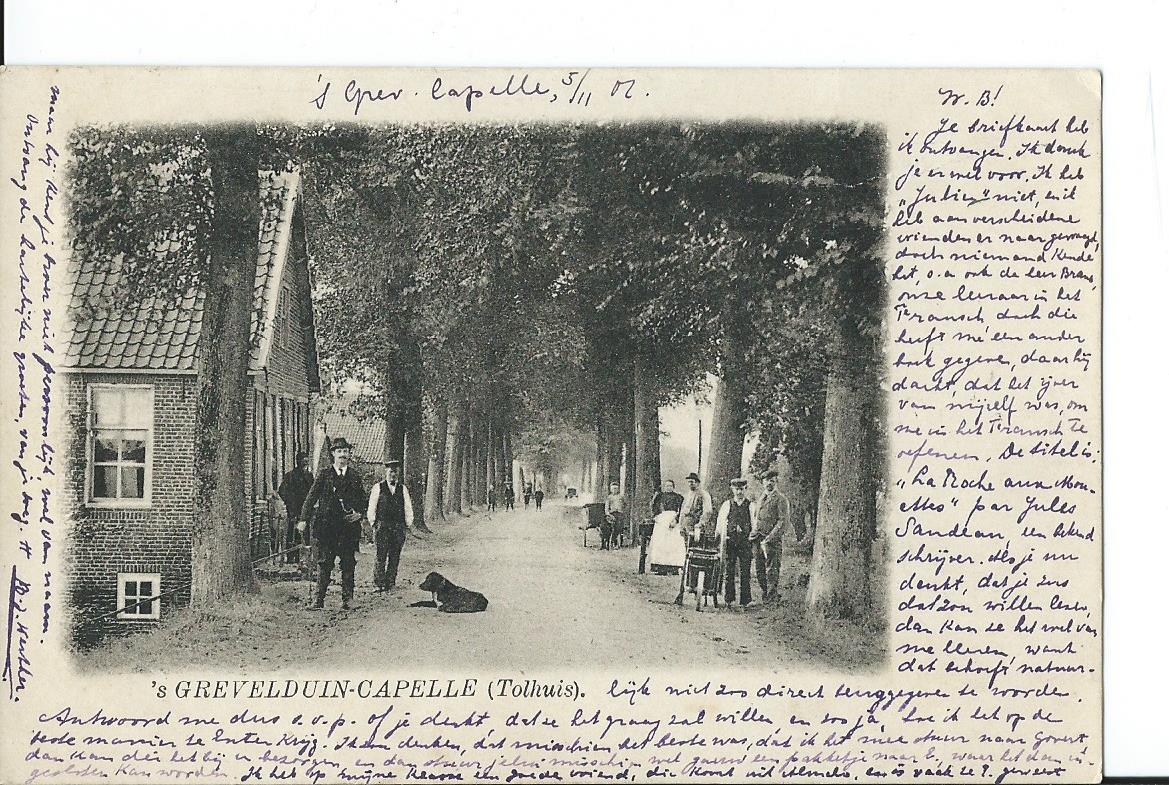 's Grev. Capelle, 5/11 01.
W. B!
Je briefkaart heb
ik ontvangen. Ik dank
je er wel voor. Ik heb
„Julien" niet, en ik
heb aan verscheidene
vrienden er naar gevraagd,
doch niemand kende
het, o.a ook de heer
onze leeraar in het
Fransch, doch die
heeft me een ander
boek gegeve, daar hij
dacht, dat het ijver
van mijzelf was, om
me in het Fransch te
oefenen. De titel is:
„La Roche aux Mou-
ettes" par Jules
Sandeau, een bekend
schrijver. Als je nu
denkt, dat je zus
dat zou willen lesen,
dan kan ze het wel van
me leenen, want
dat behoeft natuur-
lijk niet zoo direct teruggegeven te worden.
's GREVELDUIN-CAPELLE (Tolhuis).
Antwoord me dus s.v.p. of je denkt, dat ze het graag zal willen en zoo ja, hoe ik het op de
beste manier te Enter krijg. Ik zou denken, dat misschien het beste was, dat ik het mee stuur naar Govert
dan kan die het bij u bezorgen, en dan stuur jelui misschien wel gauw een pakketje naar E, waar het dan in-
gesloten kan worden. Ik heb op mijne klasse een goede vriend, die komt uit Almelo, en is vaak te E. geweest
maar hij kent je broer niet persoonlijk wel van naam.
Ontvang de hartelijke groeten, van je toeg.